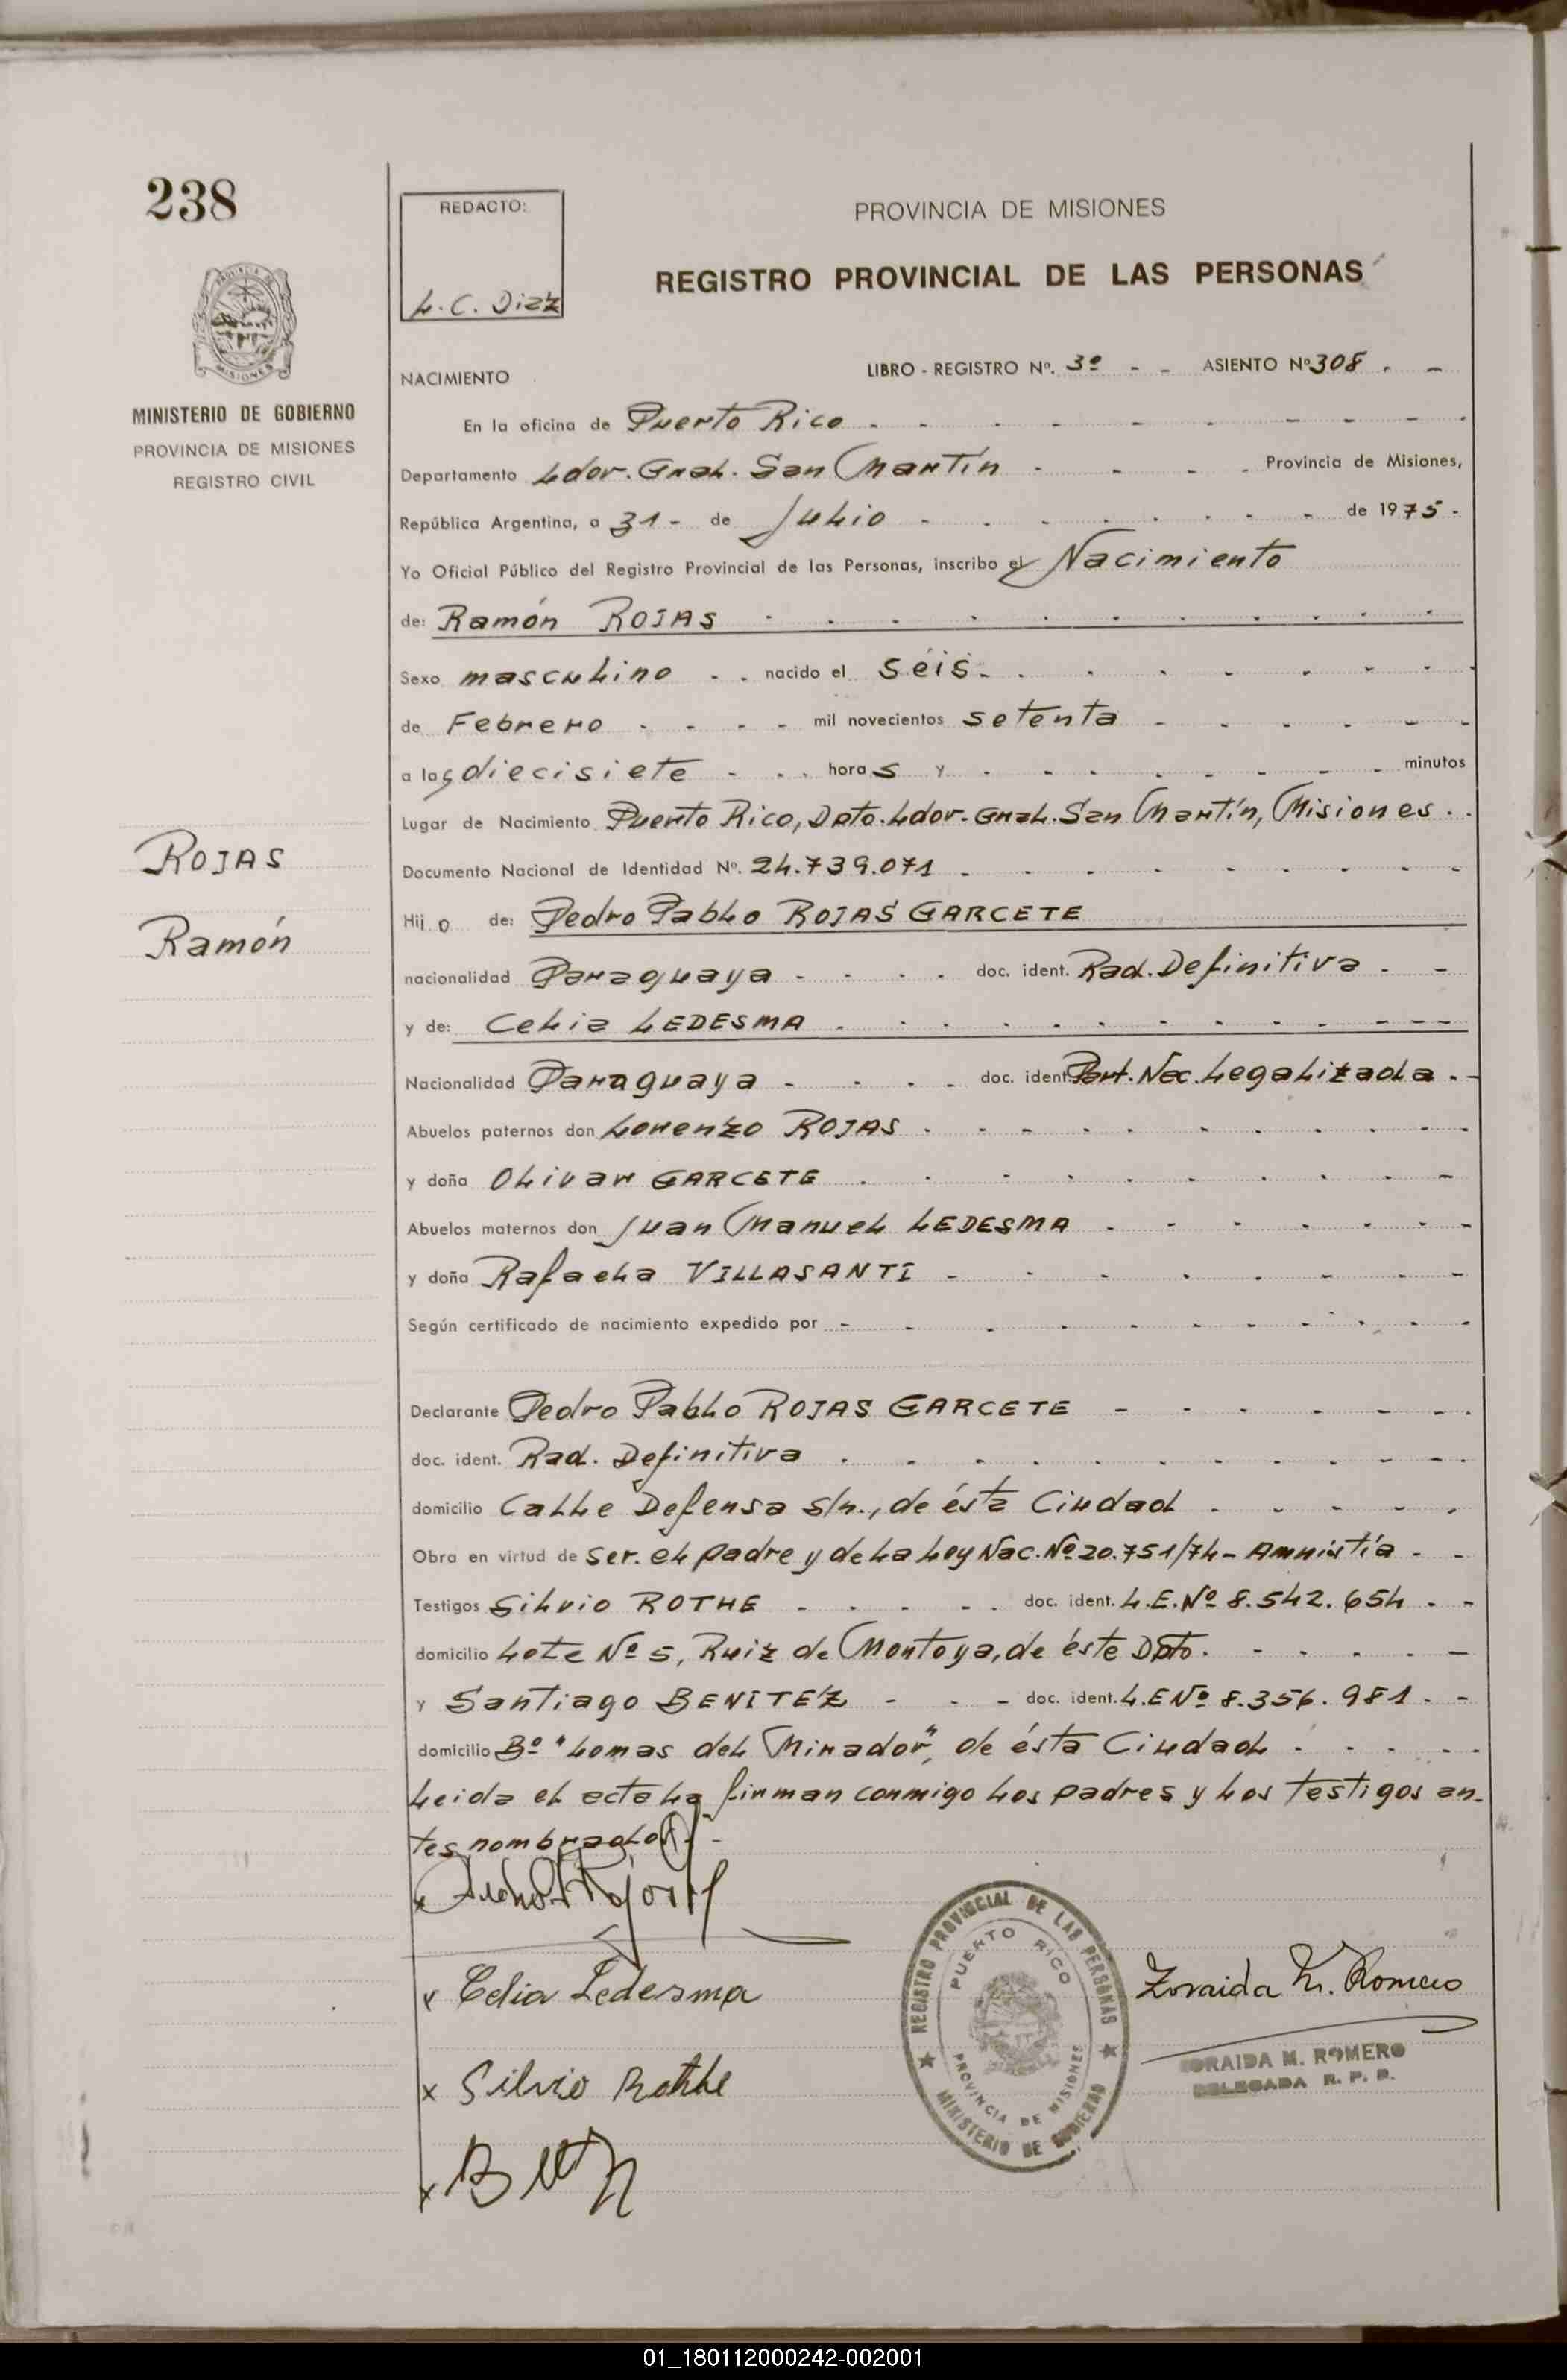 238
REDACTO:
L.C. Diaz
PROVINCIA DE MISIONES
REGISTRO PROVINCIAL DE LAS PERSONAS
MISIONES
MINISTERIO DE GOBIERNO
PROVINCIA DE MISIONES
REGISTRO CIVIL
NACIMIENTO LIBRO - REGISTRO Nº. 3º - - ASIENTO Nº 308 . -
En la oficina de Puerto Rico
Departamento Ldor. Gral. San Martín Provincia de Misiones,
República Argentina, a 31- de Julio de 1975-
Yo Oficial Público del Registro Provincial de las Personas, inscribo el Nacimiento
de: Ramón ROJAS
Sexo masculino nacido el seis
de Febrero mil novecientos setenta
a las diecisiete horas y minutos
Lugar de Nacimiento Puerto Rico, Dpto. Ldor. Gral. San Martín, Misiones
ROJAS
Ramón
Documento Nacional de Identidad Nº. 24.739.071
Hijo de: Pedro Pablo ROJAS GARCETE
nacionalidad Paraguaya doc. ident. Rad. Definitiva
y de: Celia LEDESMA
Nacionalidad Paraguaya doc. ident. Part. Nac. Legalizada
Abuelos paternos don Lorenzo ROJAS
y doña Olivar GARCETE
Abuelos maternos don Juan Manuel LEDESMA
y doña Rafaela VILLASANTI
Según certificado de nacimiento expedido por
Declarante Pedro Pablo ROJAS GARCETE
doc. ident. Rad. Definitiva
domicilio Calle Defensa s/n., de ésta Ciudad
Obra en virtud de ser. el padre y de la Ley Nac. Nº 20.751/74- Amnistía
Testigos Silvio ROTHE doc. ident. L.E. Nº 8.542.654
domicilio Lote Nº 5, Ruiz de Montoya, de éste Dpto.
y Santiago BENITEZ doc. ident. L.E Nº 8.356.981
domicilio Bº "Lomas del Mirador", de ésta Ciudad
Leida el acta la firman conmigo los padres y los testigos an-
tes nombrados
x Celia Ledesma
x Silvio Rothe
REGISTRO PROVINCIAL DE LAS PERSONAS
PUERTO RICO
PROVINCIA DE MISIONES
MINISTERIO DE GOBIERNO
Zoraida M. Romero
ZORAIDA M. ROMERO
DELEGADA R. P. P.
01_180112000242-002001